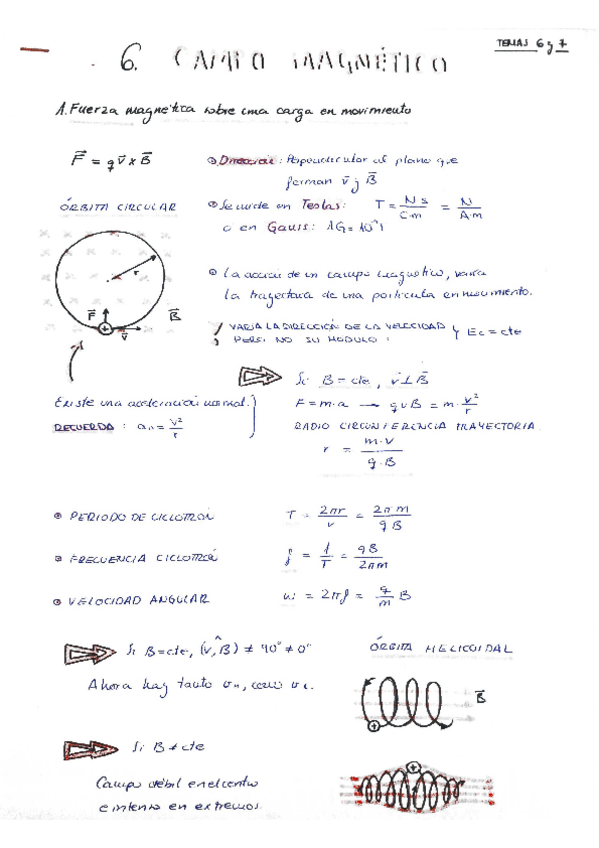 TEMAS 6 y 7
6. CAMPO MAGNÉTICO
A. Fuerza magnética sobre una carga en movimiento
F = q v x B
Dirección: Perpendicular al plano que
forman v y B
ÓRBITA CIRCULAR
Se mide en Teslas: T = N s / C·m = N / A·m
o en Gauss: 1G = 10⁻⁴ T
r
La acción de un campo magnético, varía
la trayectoria de una partícula en movimiento.
F B
+ v
¡ VARIA LA DIRECCIÓN DE LA VELOCIDAD
PERO NO SU MÓDULO ! y Ec = cte
Si B = cte, v ⊥ B
Existe una aceleración normal.
F = m·a → q v B = m · v²/r
RECUERDA: an = v²/r
RADIO CIRCUNFERENCIA TRAYECTORIA
r = m·v / q·B
PERIODO DE CICLOTRÓN T = 2πr / v = 2π m / q B
FRECUENCIA CICLOTRÓN f = 1/T = qB / 2πm
VELOCIDAD ANGULAR ω = 2πf = q/m B
Si B = cte, (v, B) ≠ 90° ≠ 0°
ÓRBITA HELICOIDAL
Ahora hay tanto
B
+
Si B ≠ cte
+
Campo débil en el centro
e intenso en extremos.